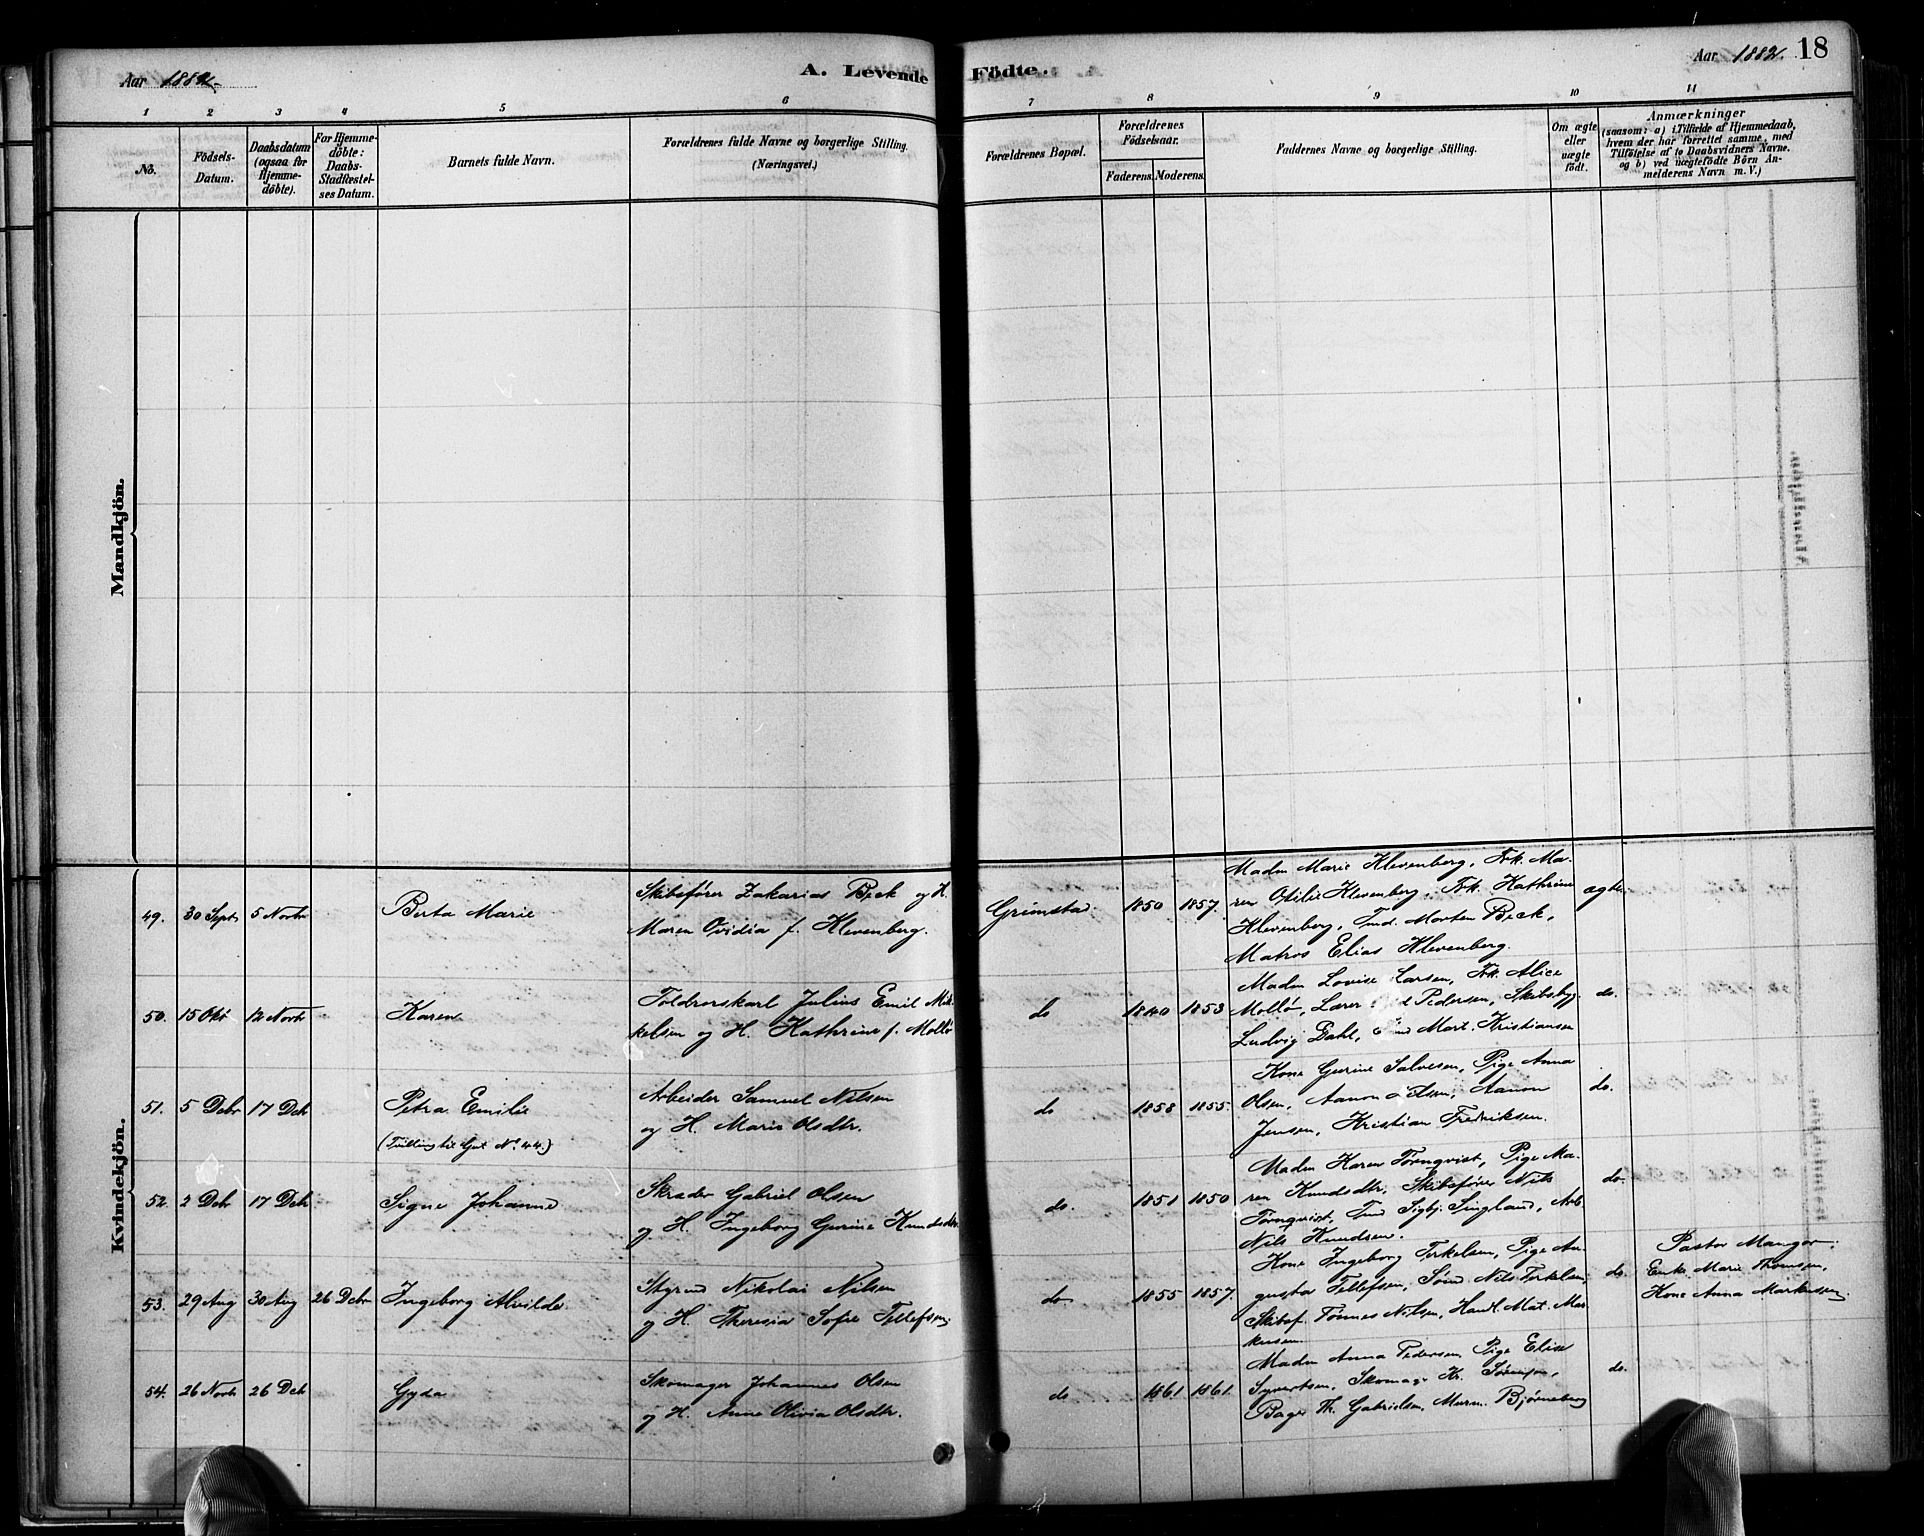 Aar 1882.
A. Levende Födte.
Aar 1882. 18
1 2 3 4 5 6 7 8 9 10 11
No.
Födsels-
Datum.
Daabsdatum
(ogsaa for
Hjemme-
döbte).
For Hjemme-
döbte:
Daabs-
Stadfæstel-
ses Datum.
Barnets fulde Navn.
Forældrenes fulde Navne og borgerlige Stilling.
(Næringsvei.)
Forældrenes Bopæl.
Forældrenes
Födselsaar.
Faderens. Moderens.
Faddernes Navne og borgerlige Stilling.
Om ægte
eller
uægte
født.
Anmærkninger
(saasom: a) i Tilfælde af Hjemmedaab,
hvem der har forrettet samme, med
Tilföielse af to Daabsvidners Navne.
og b) ved uægtefödte Börn An-
melderens Navn m. V.)
Mandkjön.
Kvindekjön.
49. 30 Sept 5 Novbr
Berta Marie
Skibsfører Zakarias Beck og H.
Maren Ovidia f. Klevenberg.
Grimstad 1850 1857.
Madm Marie Klevenberg, Frk. Ma-
ren Otilie Klevenberg, Frk. Kathrine
Klevenberg, Tmd. Morten Beck,
Matros Elias Klevenberg.
ægte
50. 15 Okt 12 Novbr
Karen
Toldrorskarl Julius Emil Mik-
kelsen og H. Kathrine f. Molle
do 1840 1853
Madm Lovise Larsen, Frk. Alice
Lærer Pedersen, Skibsbyg.
Ludvig Dahl, Mart. Kristiansen
do.
51. 5 Debr 17 Deb
Petra Emilie
(Tvilling til Gut No 44.)
Arbeider Samuel Nilsen
og H. Marie Olsdtr.
do 1858 1855.
Kone Gurine Salvesen, Pige Anna
Olsen, Aanon Aanon
Jensen, Kristian Fredriksen.
do.
52. 2 Deb 17 Deb
Signe Johanne
Skræder Gabriel Olsen
og H. Ingeborg Gurine Knudsdtr.
do. 1851 1850
Madm Karen Törnqvist, Pige Ma-
ren Knudsdtr, Skibsfører Nils
Törnqvist, Singland, Arb.
Nils Knudsen.
do.
53. 29 Aug 30 Aug 26 Debr
Ingeborg Alvilde
Styrmd Nikolai Nilsen
og H. Theresia Sofie Tellefsen
do 1855 1857.
Kone Ingeborg Terkelsen, Pige Au-
gusta Tellefsen, Sømd. Nils Terkelsen,
Skibsf. Tønnes Nilsen, Handl. Mat. Mar-
kusen
do.
Pastor
Enke Marie Thomsen,
Kone Anna Markusen.
54. 26 Novb 26 Deb
Gyda
Skomager Johannes Olsen
og H. Anne Olivia Olsdtr.
do 1861 1861.
Madm Anna Pedersen, Pige Elise
Syvertsen, Skomager Kr.
Bager Th. Gabrielsen, Murm. Bjørneborg
do.